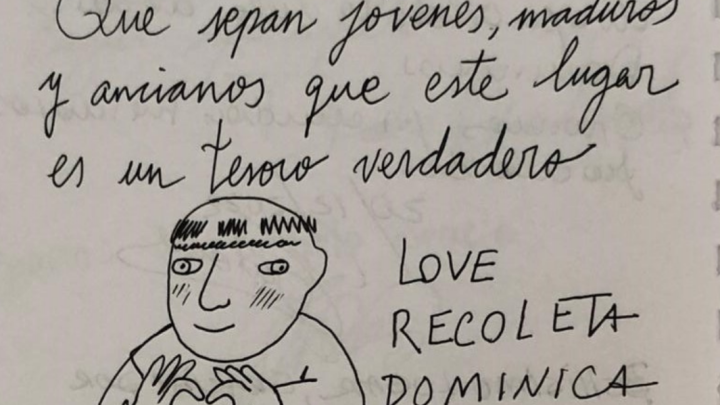 Que sepan jóvenes, maduros
y ancianos que este lugar
es un tesoro verdadero
LOVE
RECOLETA
DOMINICA